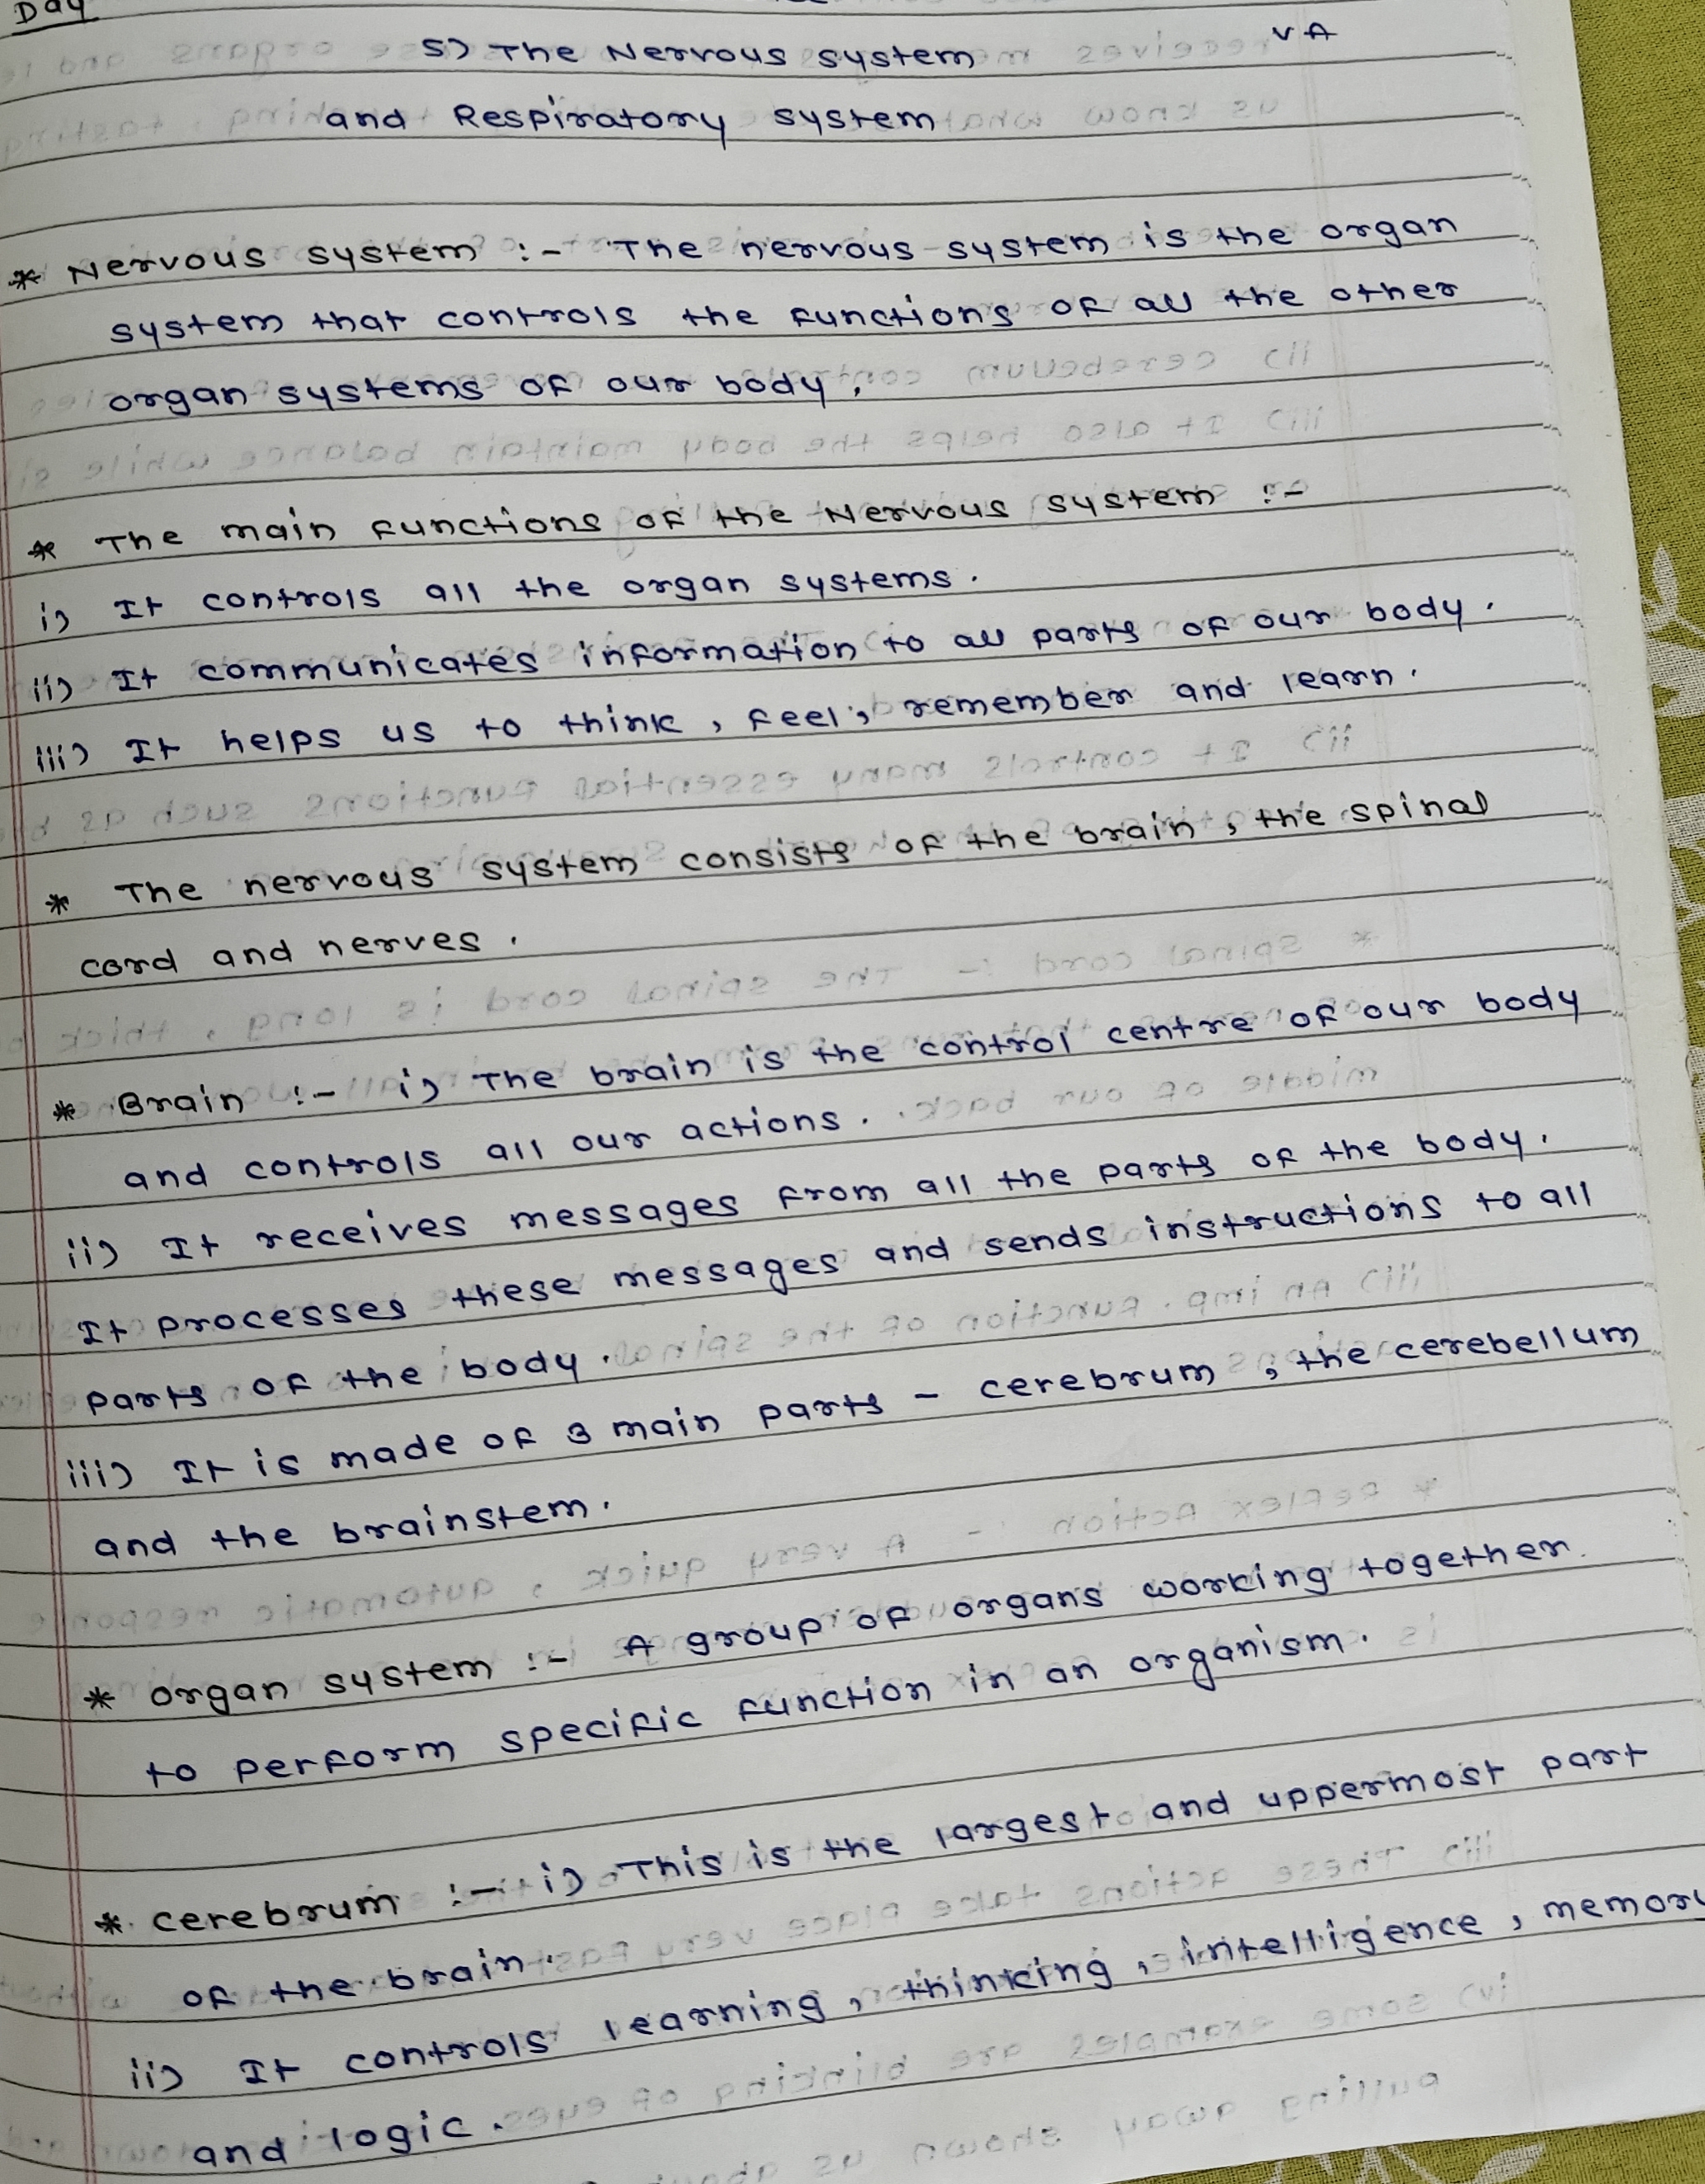 Day
5) The Nervous system
V A
and Respiratory system
* Nervous system :- The nervous system is the organ
system that controls the functions of all the other
organ systems of our body.
* The main functions of the Nervous system :-
i) It controls all the organ systems.
ii) It communicates information to all parts of our body.
iii) It helps us to think, feel, remember and learn.
* The nervous system consists of the brain, the spinal
cord and nerves.
* Brain :- i) The brain is the control centre of our body
and controls all our actions.
ii) It receives messages from all the parts of the body.
It processes these messages and sends instructions to all
parts of the body.
iii) It is made of 3 main parts - cerebrum, the cerebellum
and the brainstem.
* organ system :- A group of organs working together.
to perform specific function in an organism.
* cerebrum :- i) This is the largest and uppermost part
of the brain.
ii) It controls learning, thinking, intelligence, memory
and logic.